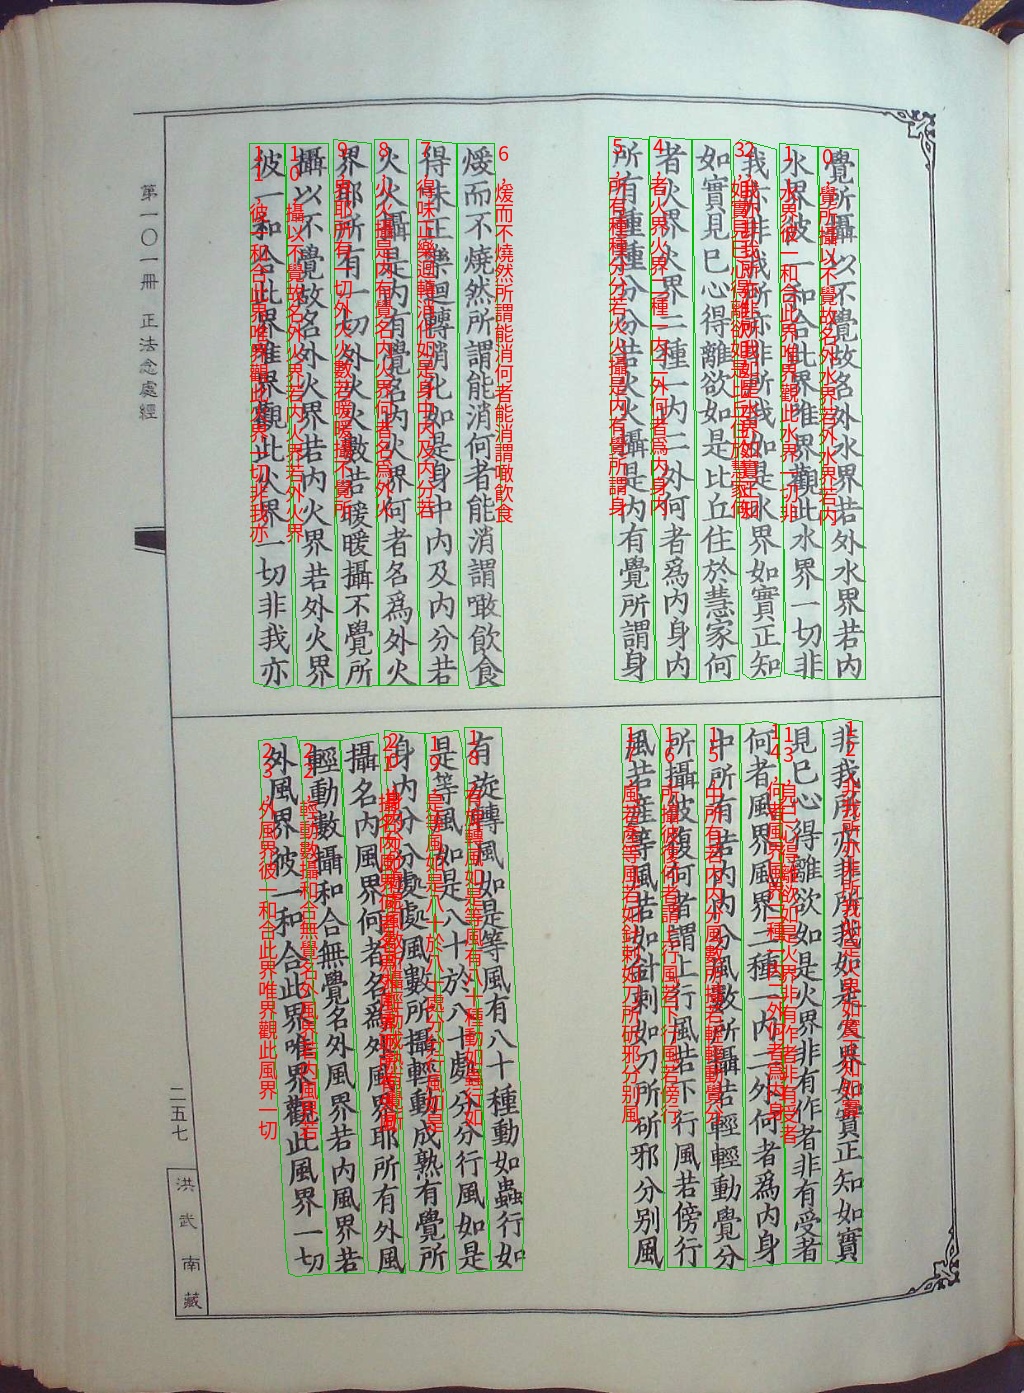 覺所攝以不覺故名外水界若外水界若内
水界彼一和合此界唯界觀此水界一切非
我亦非我所亦非所我如是水界如實正知
如實見已心得離欲如是比丘住於慧家何
者火界火界二種一内二外何者爲内身内
所有種種分分若火火攝是内有覺所謂身
煖而不燒然所謂能消何者能消謂噉飲食
得味正樂迴轉消化如是身中内及内分若
火火攝是内有覺名内火界何者名爲外火
界耶所有一切外火火數若暖暖攝不覺所
攝以不覺故名外火界若内火界若外火界
彼一和合此界唯界觀此火界一切非我亦
非我所亦非所我如是火界如實正知如實
見已心得離欲如是火界非有作者非有受者
何者風界風界二種一内二外何者爲内身
中所有若内内分風數所攝若輕輕動覺分
所攝彼復何者謂上行風若下行風若傍行
風若産等風若如針刺如刀所斫邪分别風
有旋轉風如是等風有八十種動如蟲行如
是等風如是八十於八十處分分行風如是
身内分分處處風數所攝輕動成熟有覺所
攝名内風界何者名爲外風界耶所有外風
輕動數攝和合無覺名外風界若内風界若
外風界彼一和合此界唯界觀此風界一切
第一〇一册 正法念處經
二五七
洪武南藏